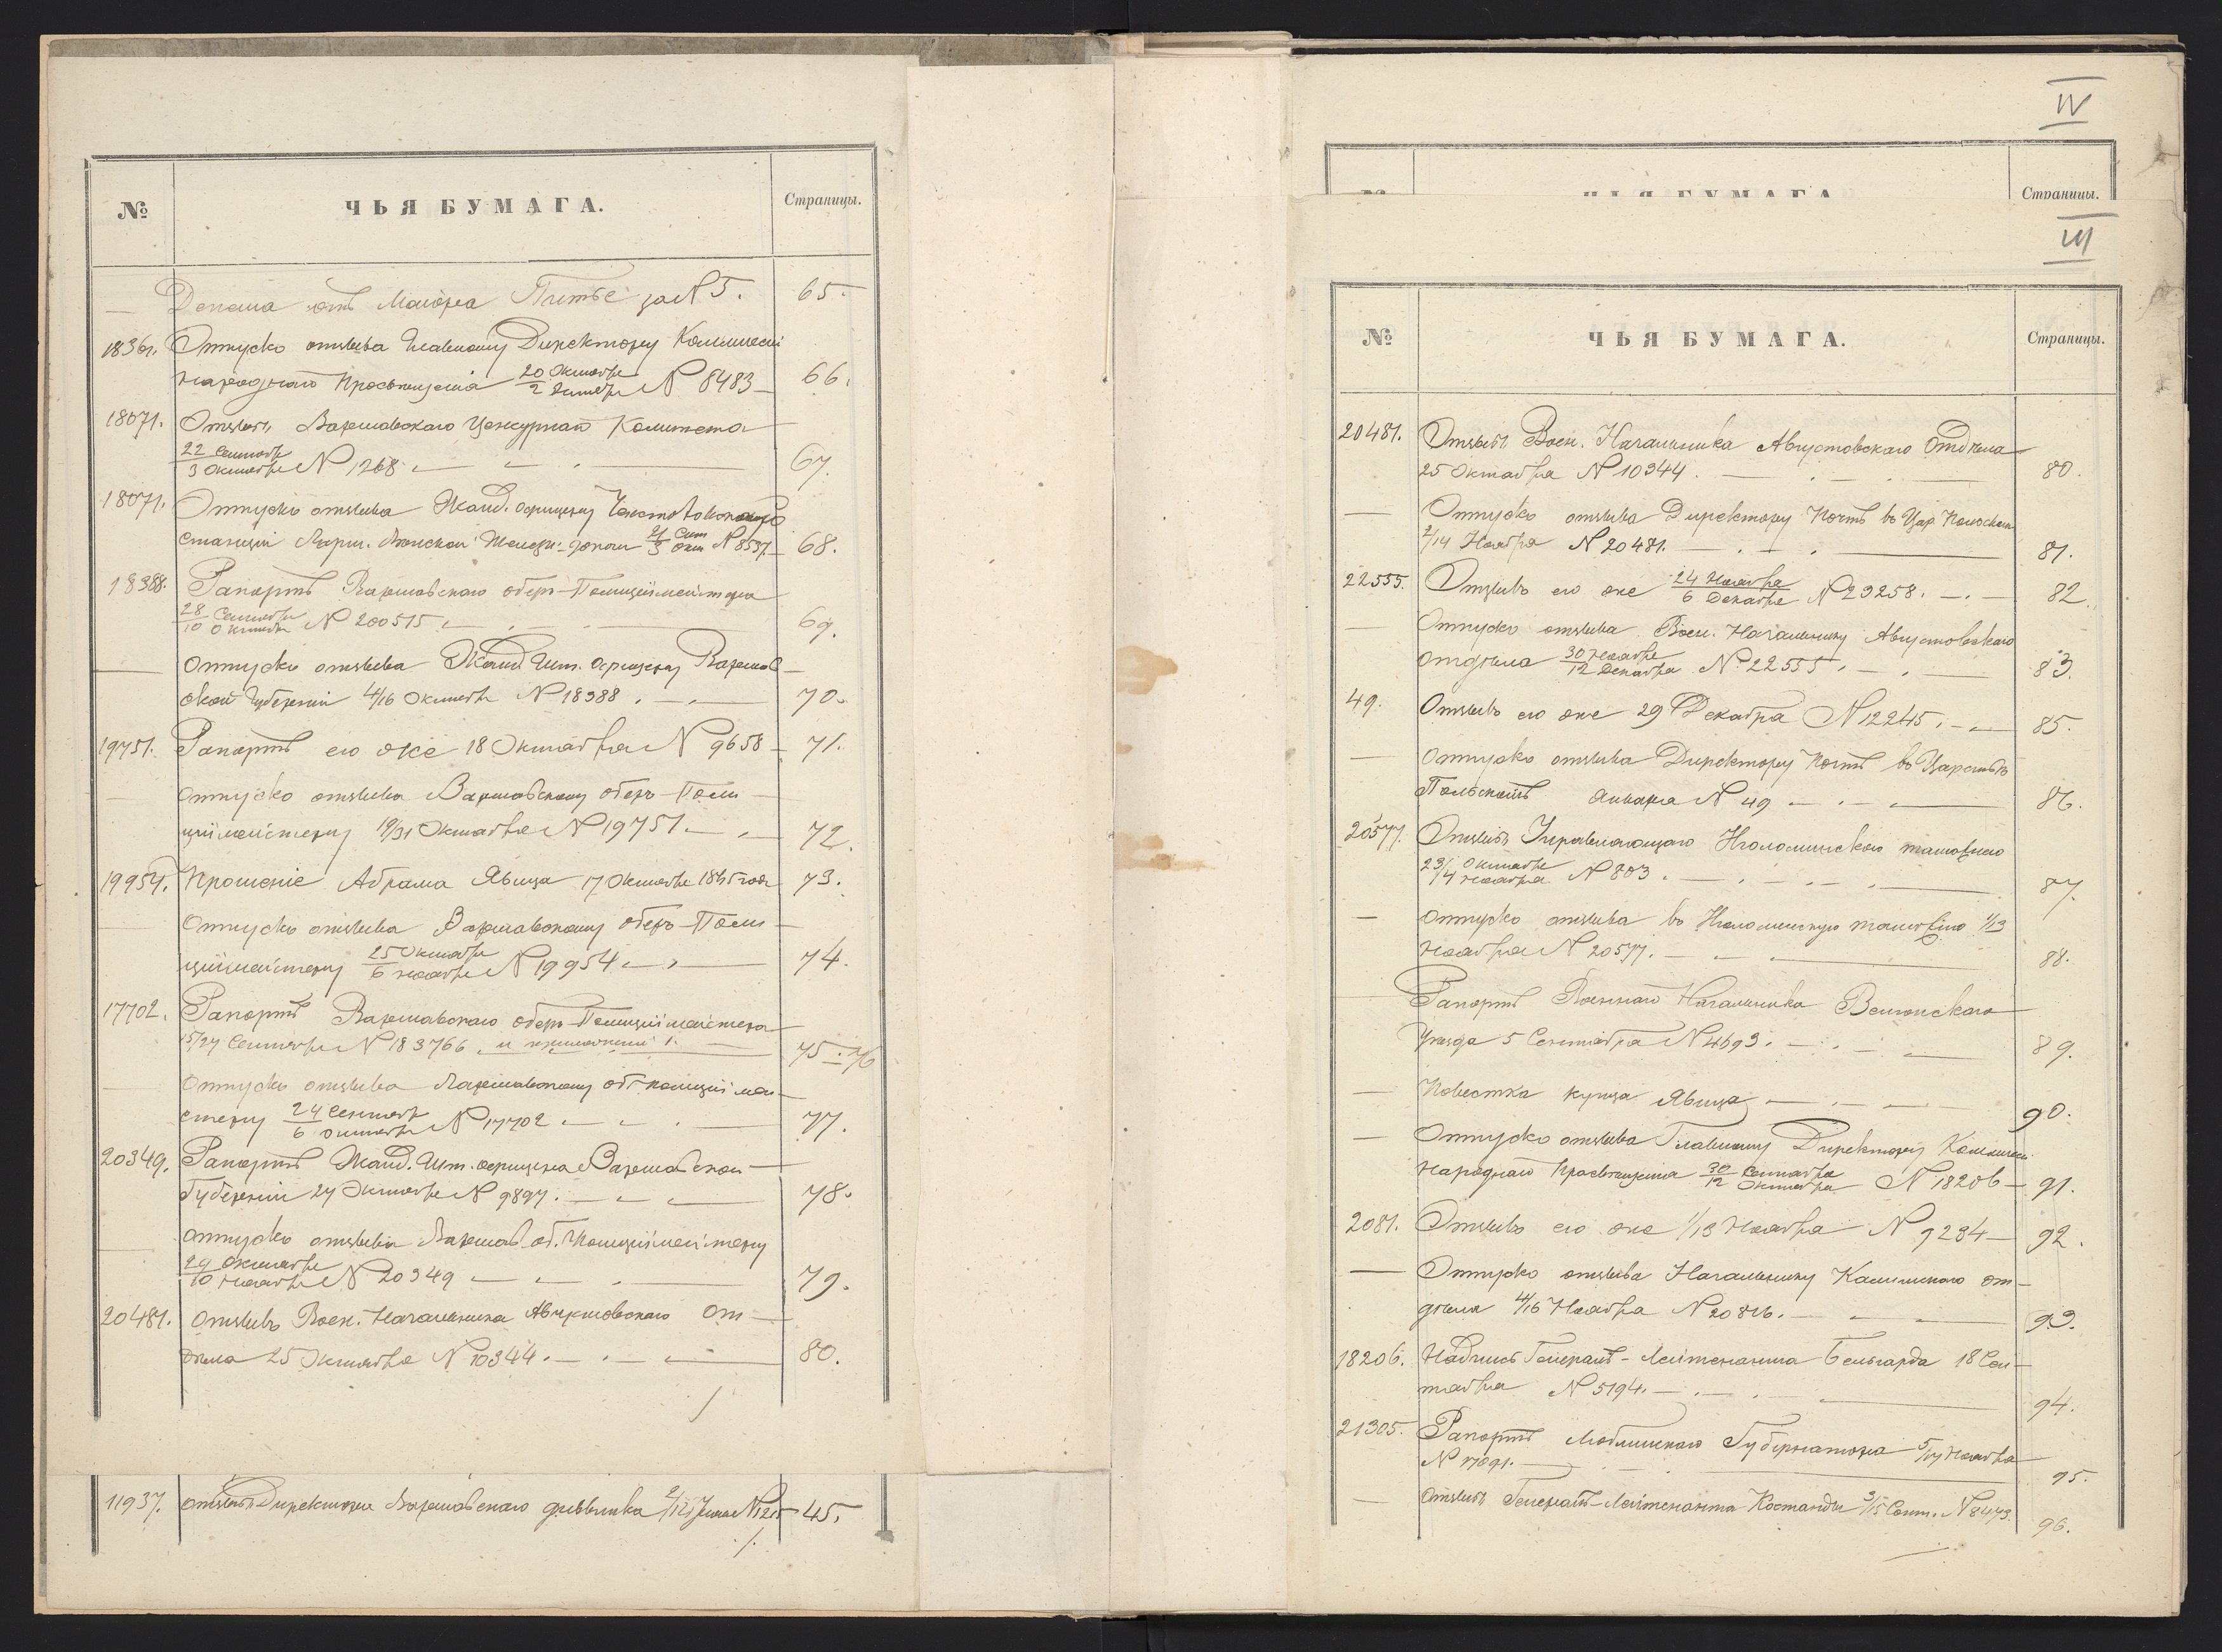 № ЧЬЯ БУМАГА. Страницы.
— Депеша отъ Маіора Питье за N 5. 65.
18361. Отпускъ отзыва Главному Директору Коммисіи
народнаго просвѣщенія 20 Октября / 2 N 8483 — 66.
18071. Отзывъ Варшавскаго Ценсурнаго Комитета
22 Сентября / 3 Октября N 1268. — 67.
18071. Отпускъ отзыва Жанд. офицеру
станціи Варш. Вѣнской Желѣз. дороги 21 Сен / 3 Окт N 8537 — 68.
18388. Рапортъ Варшавскаго оберъ-Полиціймейстера
28 Сентября / 10 Октября N 200515. — 69.
— Отпускъ отзыва Жанд. Шт. офицеру Варшав-
ской губерніи 4/16 Октября N 18388. — 70.
19751. Рапортъ его же 18 Октября N 9658 — 71.
— Отпускъ отзыва Варшавскому оберъ-Поли-
ціймейстеру 19/31 Октября N 19751. — 72.
19954. Прошеніе Абрама Явица 17 Октября 1865 года 73.
— Отпускъ отзыва Варшавскому оберъ-Поли-
ціймейстеру 25 Октября / 6 Ноября N 19954. — 74.
17702. Рапортъ Варшавскаго оберъ-Полиціймейстера
15/27 Сентября N 183766. и приложеніе 1. — 75. 76
— Отпускъ отзыва Варшавскому об. полицiймей-
стеру 24 Сентября / 6 Октября N 17702. — 77.
20349. Рапортъ Жанд. Шт. офицера Варшавской
Губерніи 27 Октября N 9897. — 78.
— Отпускъ отзыва Варшав. об. Полиціймейстеру
29 Октября / 10 Ноября N 20349 — 79.
20481. Отзывъ Воен. Начальника Августовскаго От-
дѣла 25 Октября N 10344. — 80.
11937. Отзывъ Директора Варшавскаго 45.
IV
Страницы.
III
№ ЧЬЯ БУМАГА. Страницы.
20481. Отзывъ Воен. Начальника Августовскаго Отдѣла
25 Октября N 10344. — 80.
— Отпускъ отзыва Директору Почтъ въ Цар. Польскомъ
2/14 Ноября N 20481. — 81.
22555. Отзывъ его же 24 Ноября / 6 Декабря N 23258. — 82.
— Отпускъ отзыва Воен. Начальнику Августовскаго
отдѣла 30 Ноября / 12 Декабря N 22555. — 83.
49. Отзывъ его же 29 Декабря N 12245. — 85.
— Отпускъ отзыва Директору Почтъ въ Царствѣ
Польскомъ Января N 49 — 86.
20577. Отзывъ Управляющаго Иголомнискою таможнею
23 Октября / 4 Ноября N 803. — 87.
— Отпускъ отзыва въ Иголомнискую таможню 1/13
Ноября N 20577. — 88.
— Рапортъ Военнаго Начальника Велюнскаго
Уѣзда 5 Сентября N 4693. — 89.
— Повестка купца Явица — 90.
— Отпускъ отзыва Главному Директору Коммисіи
народнаго просвѣщенія 30 Сентября / 12 Октября N 18206 — 91.
2081. Отзывъ его же 1/13 Ноября N 9284 — 92.
— Отпускъ отзыва Начальнику Калишскаго от-
дѣла 4/16 Ноября N 20816. — 93.
18206. Надпись Генералъ-Лейтенанта Бельгарда 18 Сен-
тября N 5194. — 94.
21305. Рапортъ Люблинскаго Губернатора 5/17 Ноября
N 17091. — 95.
— Отзывъ Генералъ-Лейтенанта Костанды 3/15 Сент. N 8473. 96.